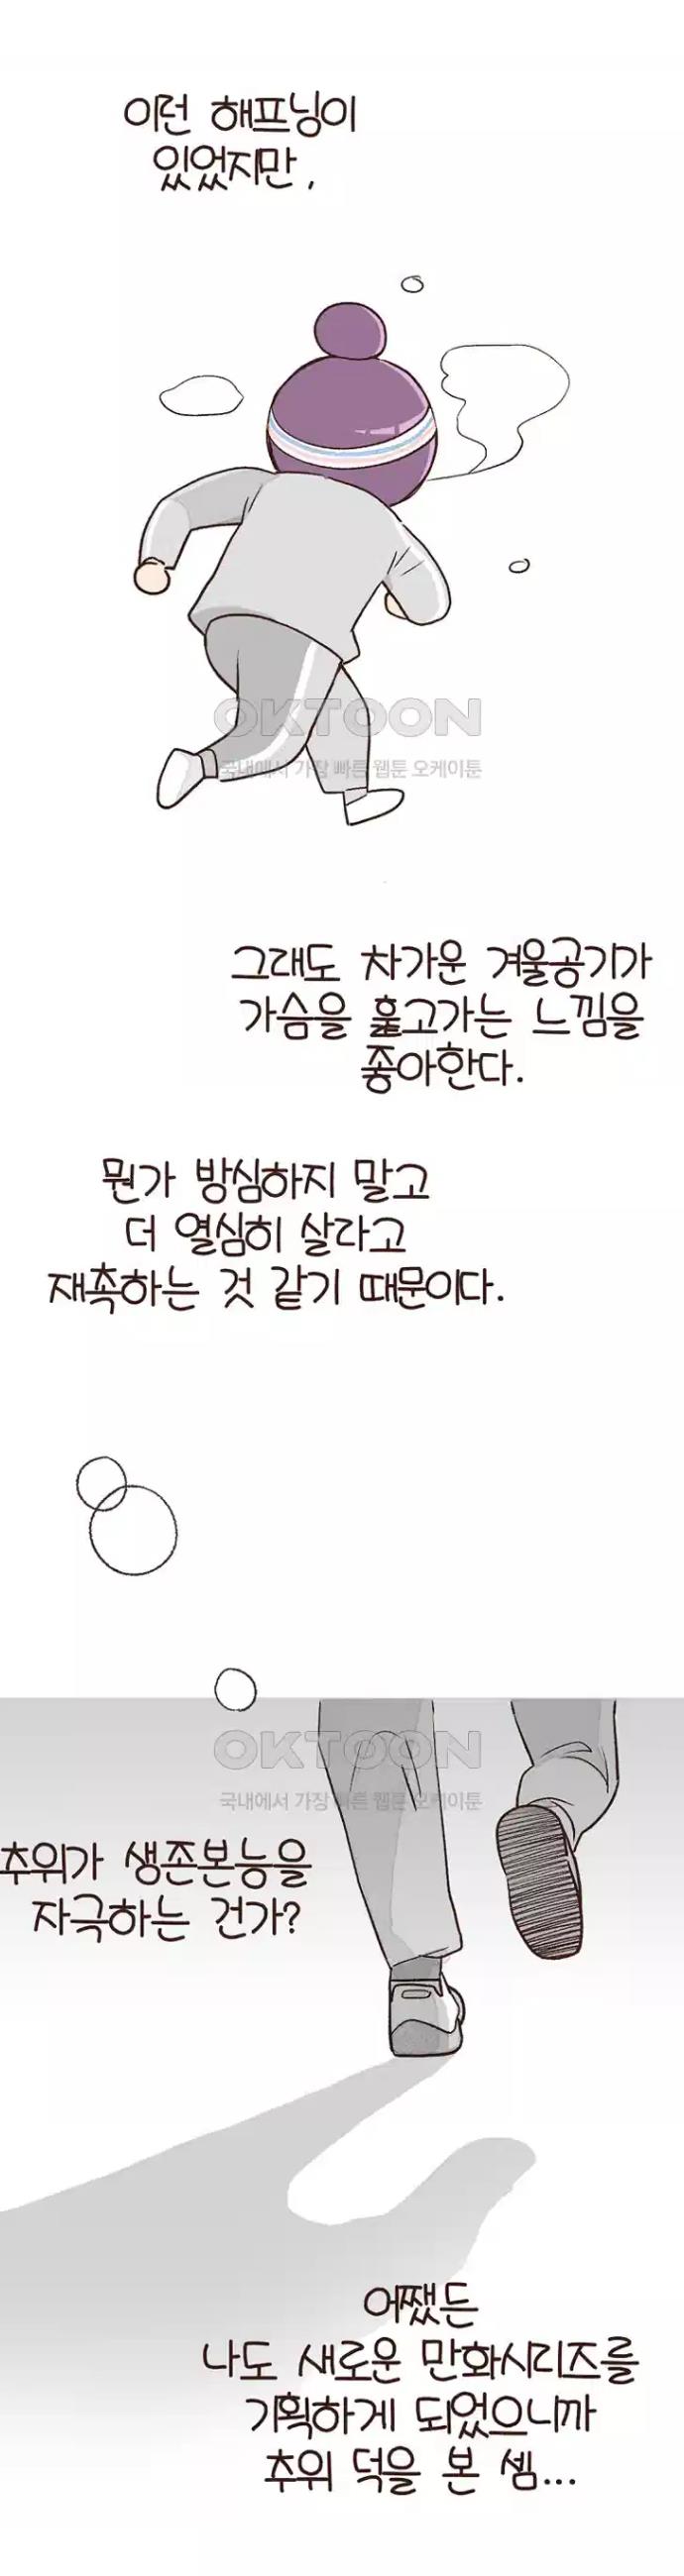 이런 해프닝이
있었지만,
OKTOON
국내에서 가장 빠른 웹툰 오케이툰
그래도 차가운 겨울공기가
가슴을 훑고가는 느낌을
좋아한다.
뭔가 방심하지 말고
더 열심히 살라고
재촉하는 것 같기 때문이다.
OKTOON
국내에서 가장 빠른 웹툰 오케이툰
추위가 생존본능을
자극하는 건가?
어쨌든
나도 새로운 만화시리즈를
기획하게 되었으니까
추위 덕을 본 셈...